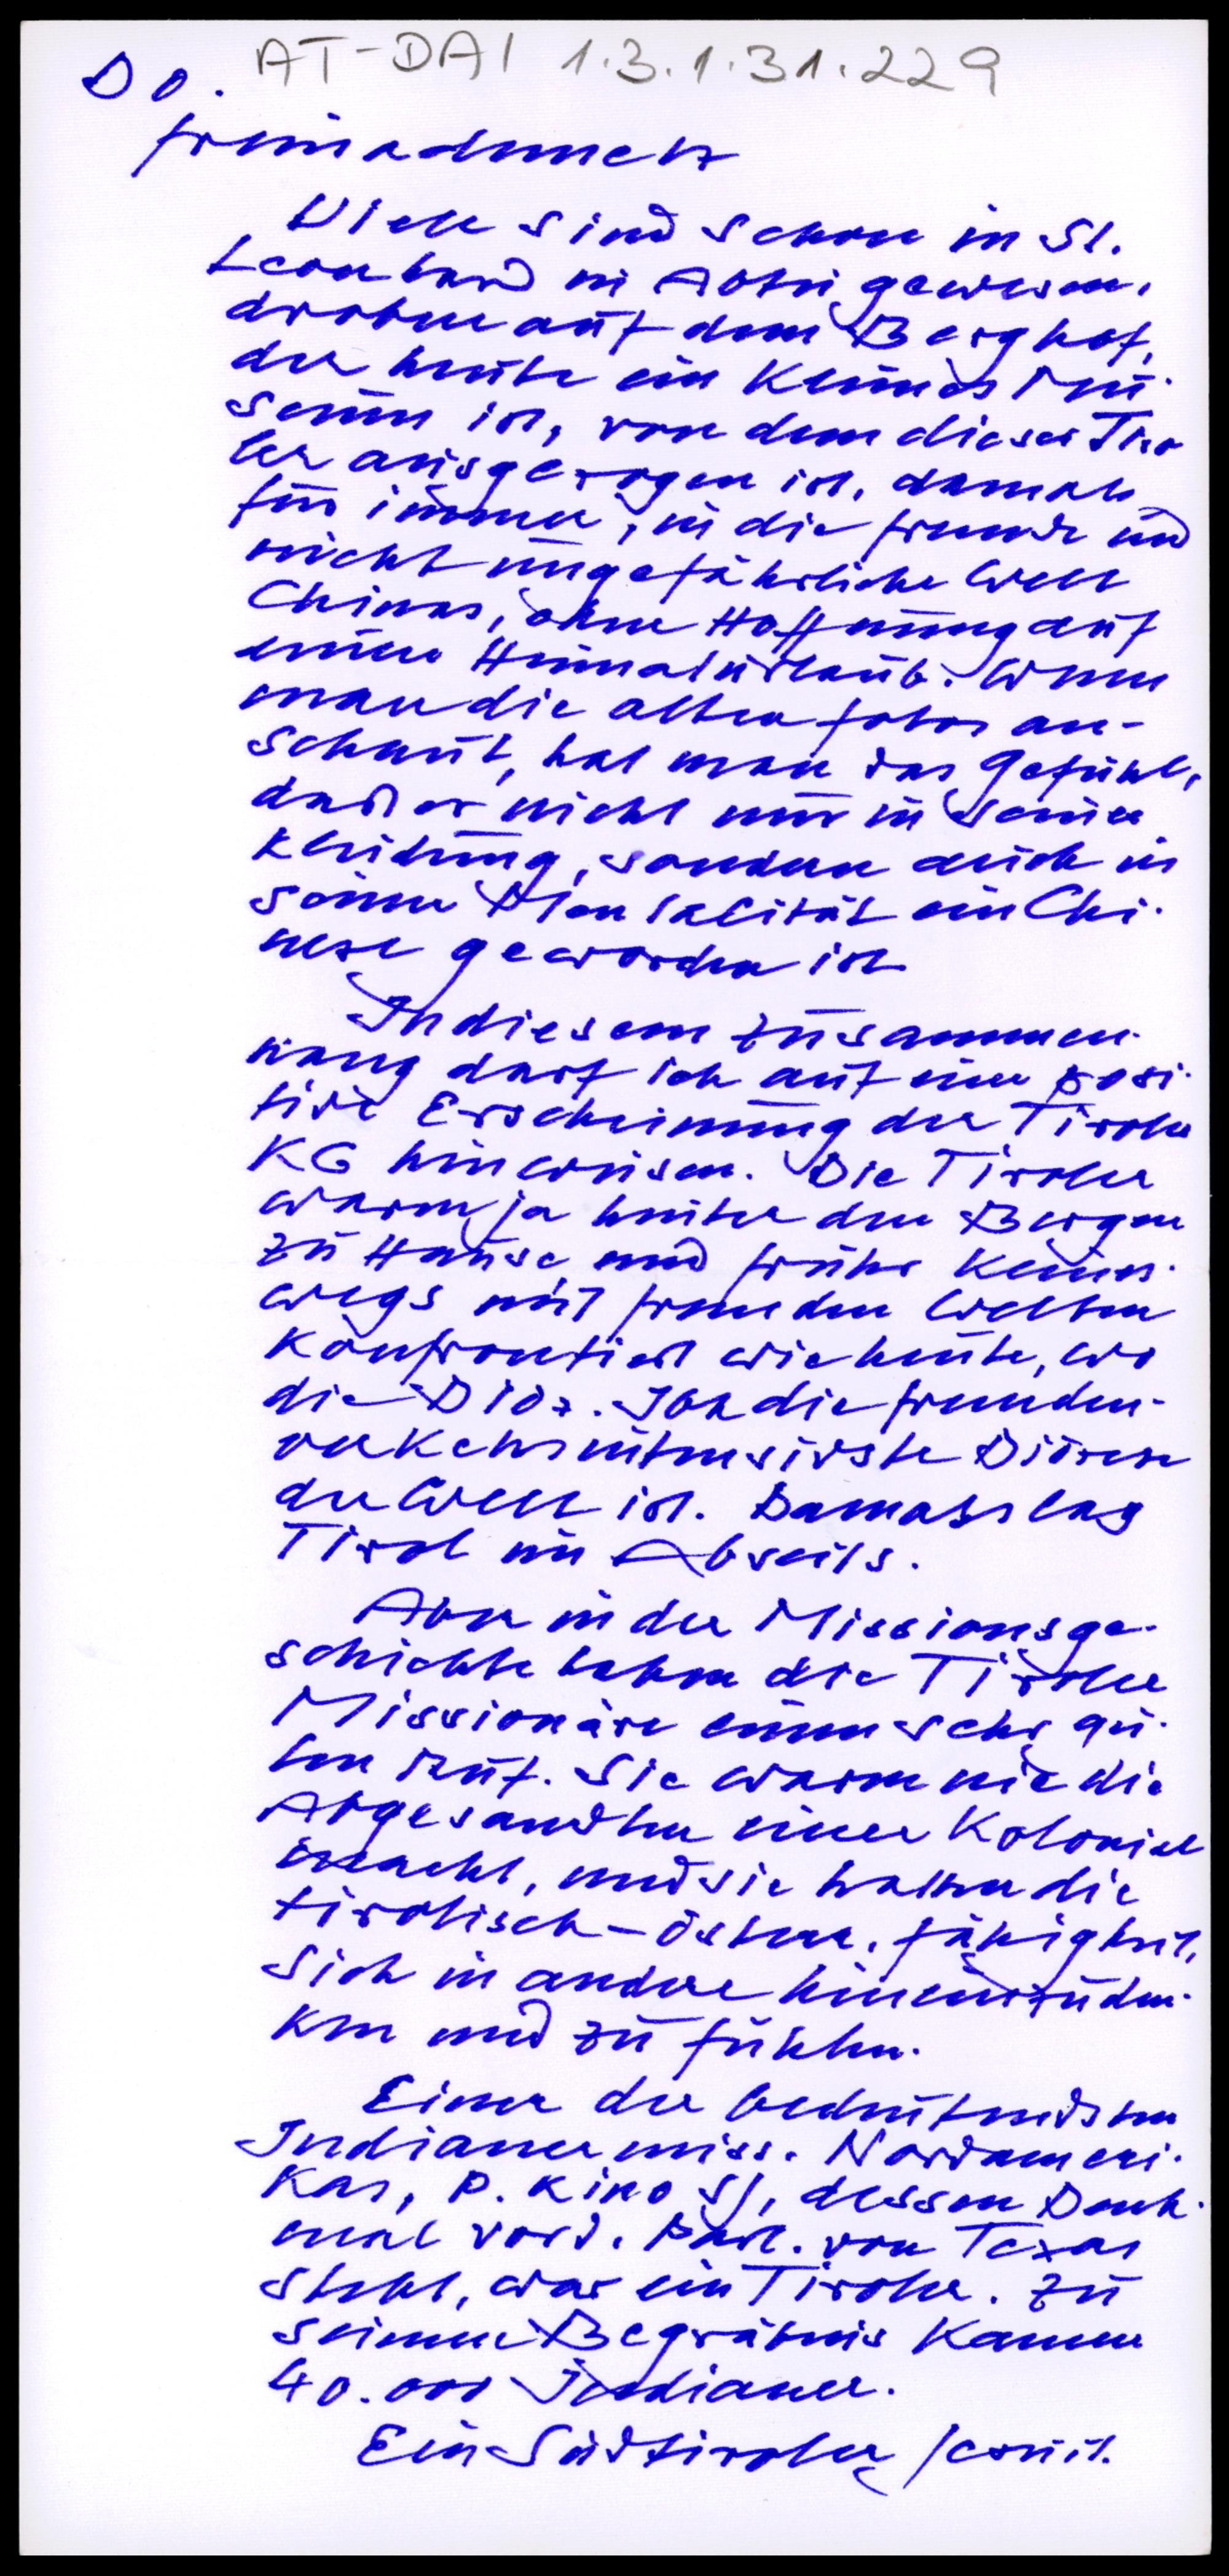 AT-DAI 1.3.1.31.229
Do.
Freinademetz
Viele sind schon in St.
Leonhard in Abtei gewesen,
droben auf dem Berghof,
der heute ein kleines Mu-
seum ist, von dem dieser Tiro
ler ausgezogen ist, damals
für immer, in die fremde und
nicht ungefährliche Welt
Chinas, ohne Hoffnung auf
einen Heimaturlaub. Wenn
man die alten Fotos an-
schaut, hat man das Gefühl,
daß er nicht nur in seiner
Kleidung, sondern auch in
seiner Mentalität ein Chi-
nese geworden ist.
In diesem Zusammen-
hang darf ich auf eine posi-
tive Erscheinung der Tiroler
KG hinweisen. Die Tiroler
waren ja hinter den Bergen
zu Hause und früher keines-
wegs mit fremden Welten
konfrontiert wie heute, wo
die Diöz. Ibk die fremden-
verkehrsintensivste Diözese
der Welt ist. Damals lag
Tirol im Abseits.
Aber in der Missionsge-
schichte haben die Tiroler
Missionäre einen sehr gu-
ten Ruf. Sie waren nie die
Abgesandten einer Kolonial
macht, und sie hatten die
tirolisch-österr. Fähigkeit,
sich in andere hineinzuden-
ken und zu fühlen.
Einer der bedeutendsten
Indianermiss. Nordameri-
kas, P. Kino SJ, dessen Denk-
mal vor d. Parl. von Texas
steht, war ein Tiroler. Zu
seinem Begräbnis kamen
40.000 Indianer.
Ein Südtiroler Jesuit